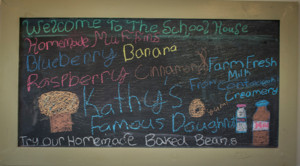 Welcome To The School House
Homemade Muffins
Blueberry Banana
Raspberry Cinnamon
Farm Fresh
Milk
From
Creamery
Kathy's
Famous Doughnuts
Try our Homemade Baked Beans